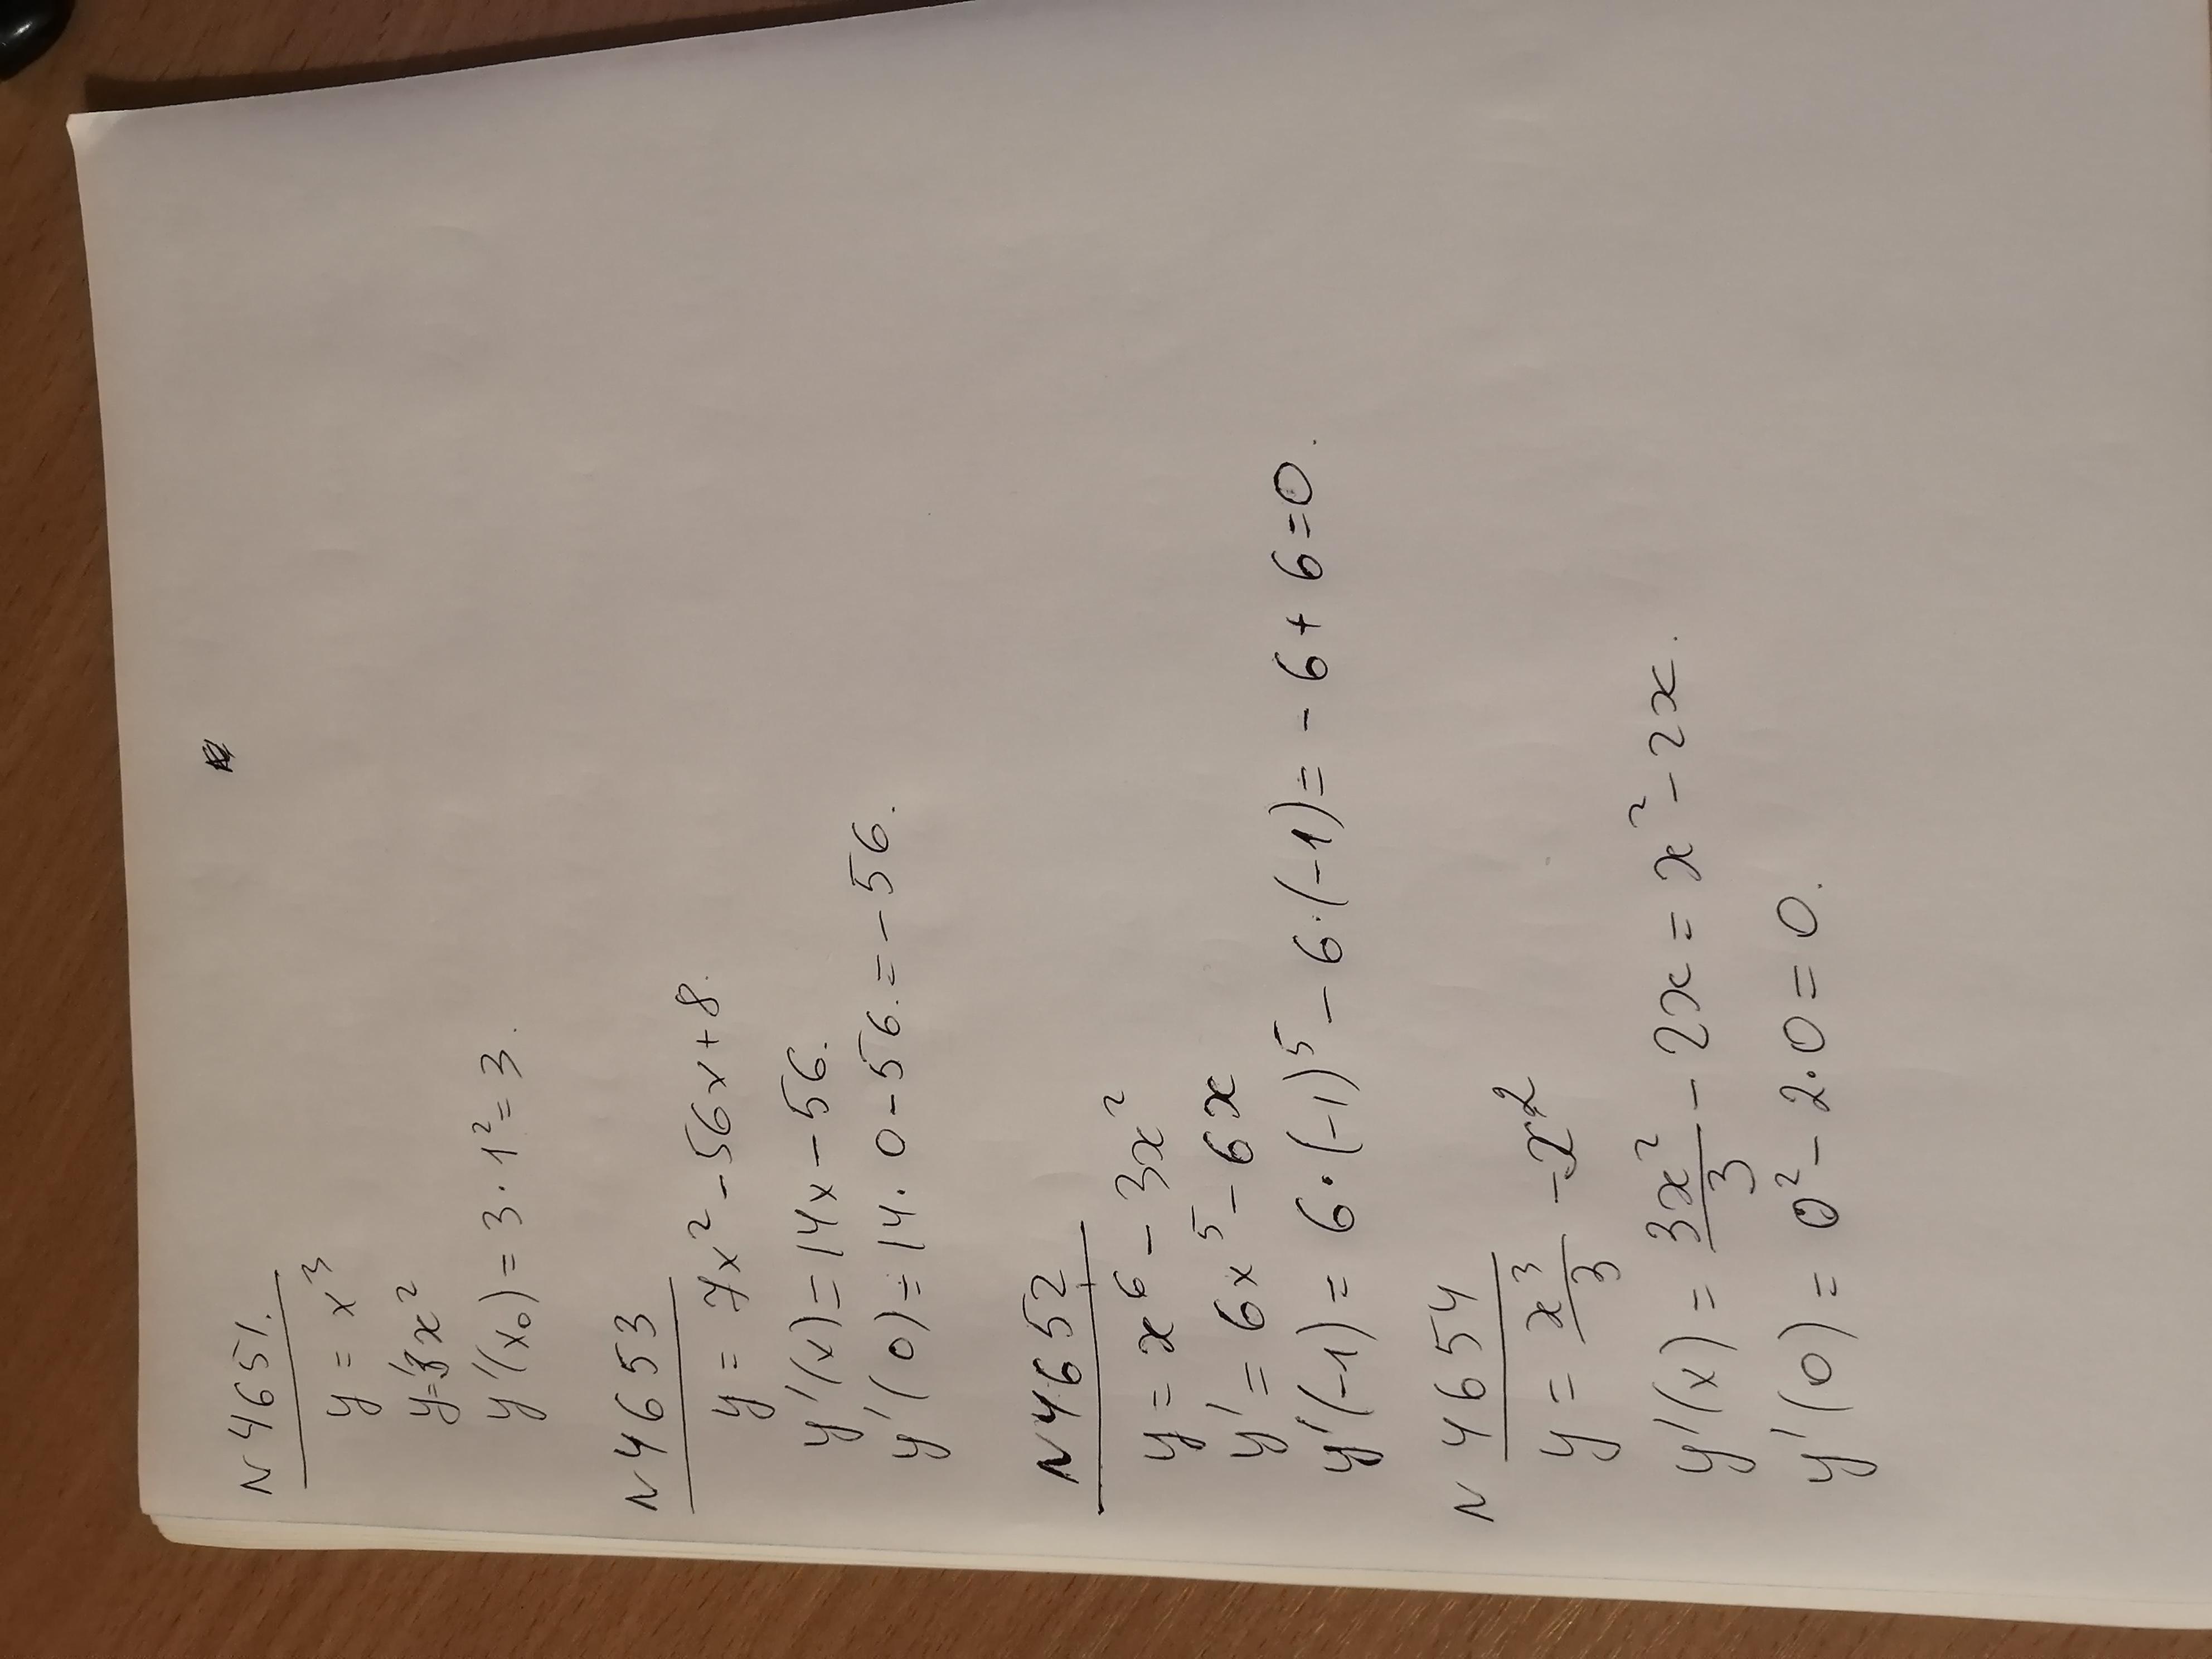 N 4651.
y = x³
y'=3x²
y'(x₀) = 3 · 1² = 3.
N 4653
y = 7x² - 56x + 8.
y'(x) = 14x - 56.
y'(0) = 14 · 0 - 56. = - 56.
N 4652
y = x⁶ - 3x²
y' = 6x⁵ - 6x
y'(-1) = 6 · (-1)⁵ - 6 · (-1) = - 6 + 6 = 0.
N 4654
y = x³/3 - x²
y'(x) = 3x²/3 - 2x = x² - 2x.
y'(0) = 0² - 2 · 0 = 0.